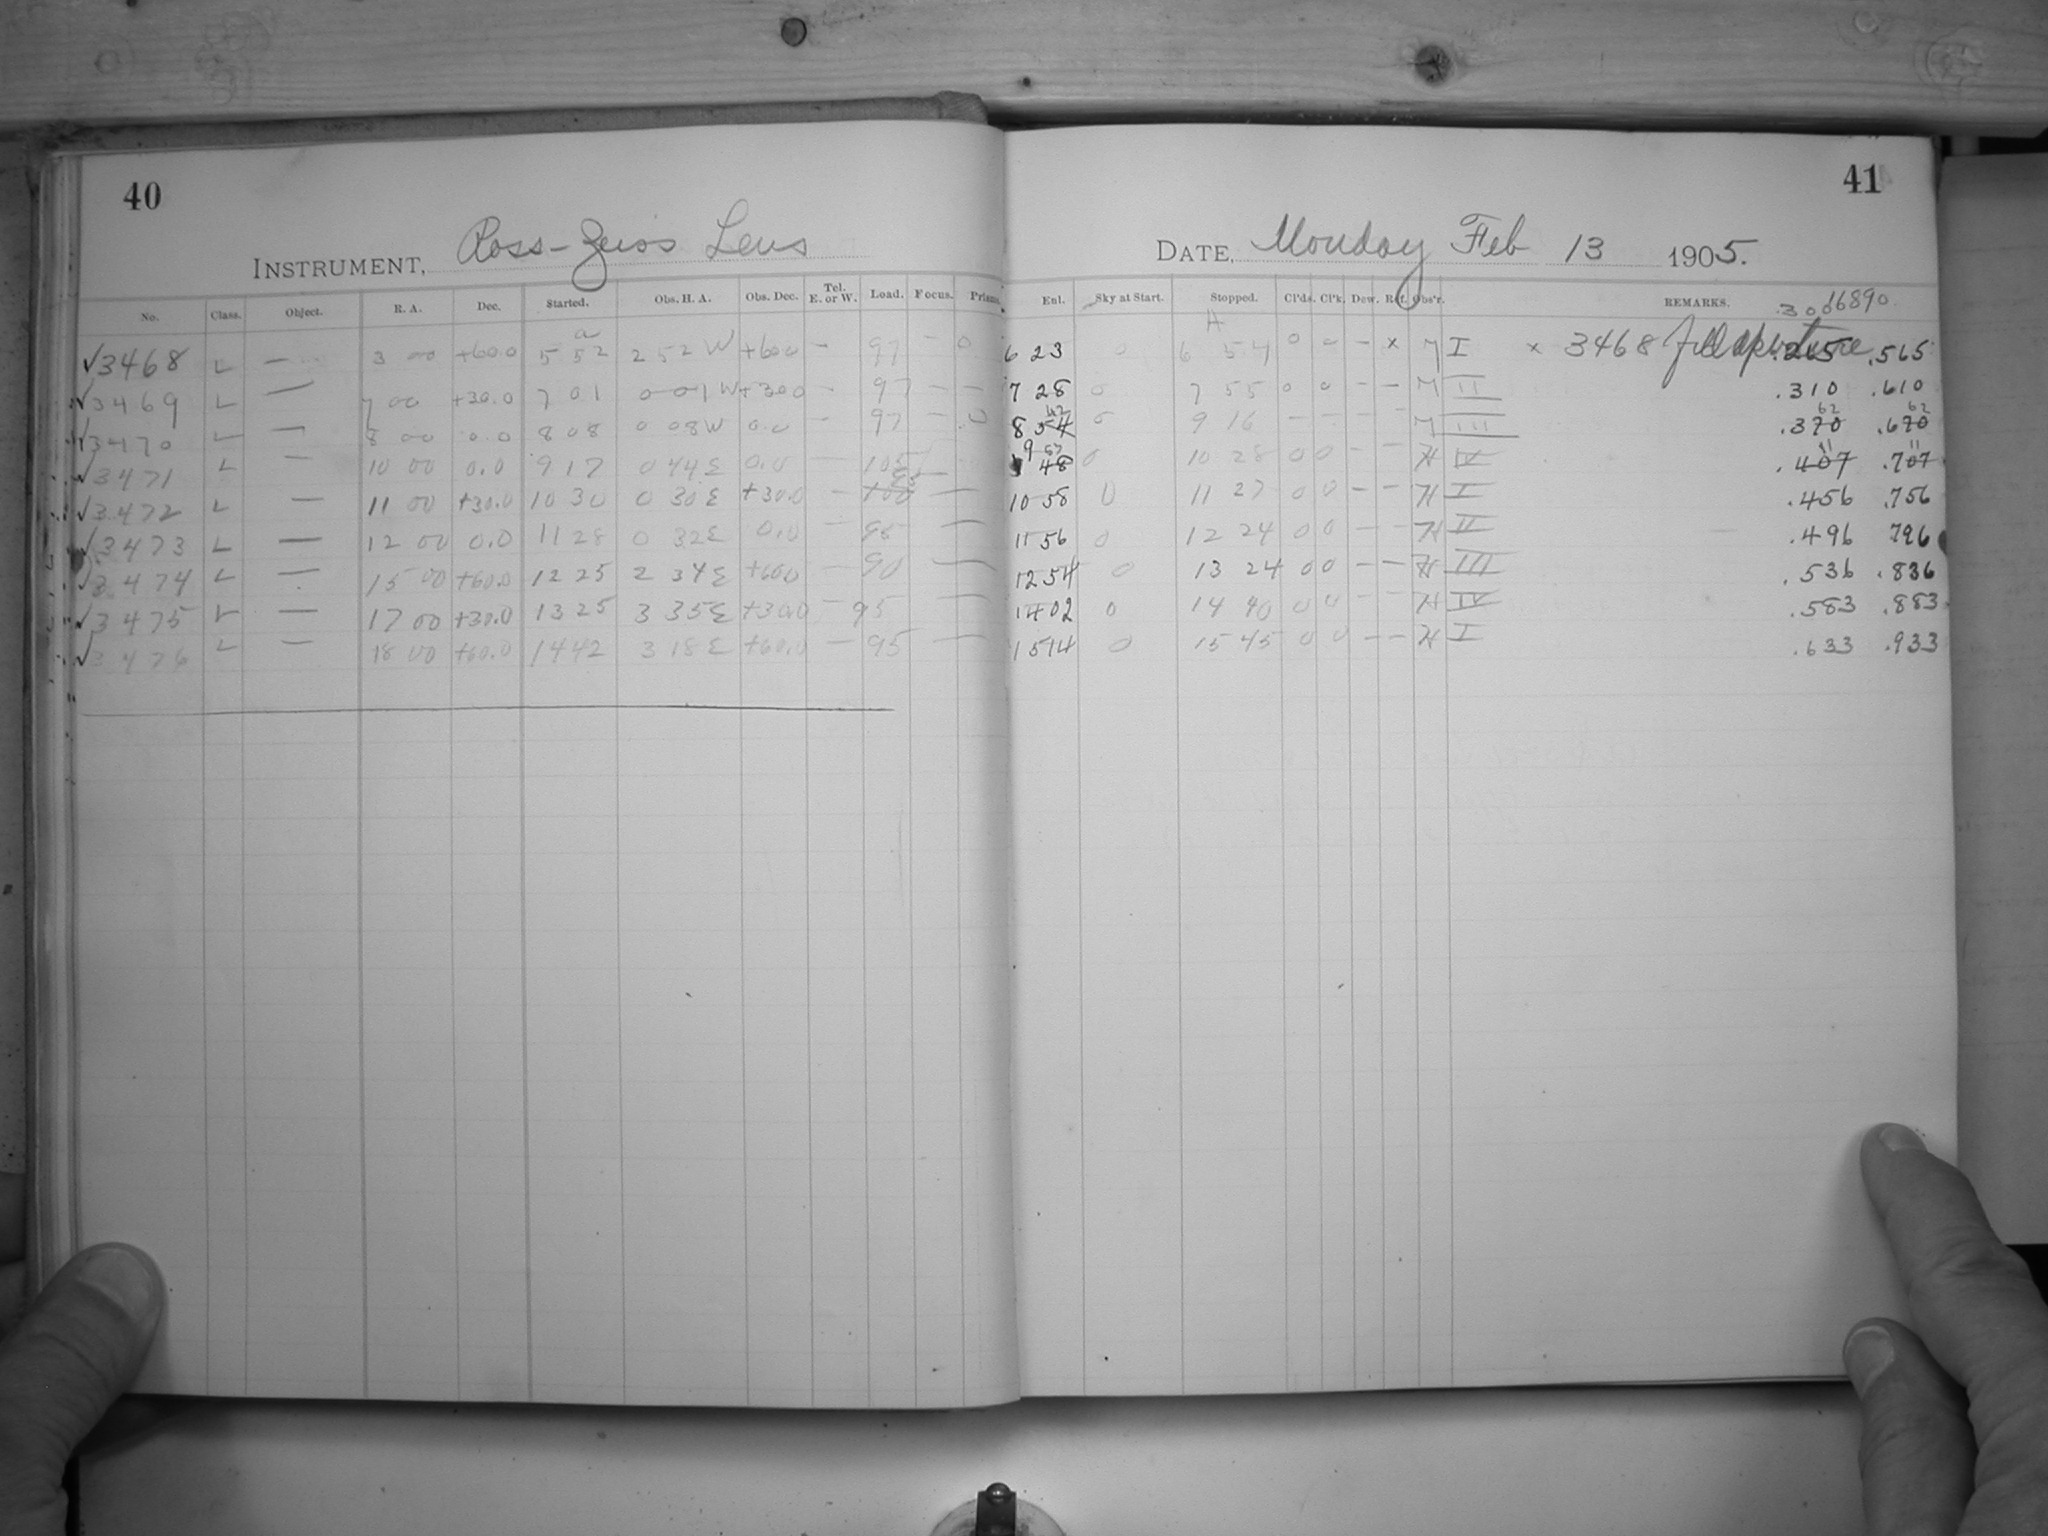 40
INSTRUMENT, Ross-Zeiss Lens
No. Class. Object. R. A. Dec. Started. Obs. H. A. Obs. Dec. Tel. E. or W. Load. Focus. Prisms.
√3468 L — 3 00 +60.0 5 52 2 52 W +60.0 — 97 — 0
√3469 L — 7 00 +30.0 7 01 0 01 W +30.0 — 97 — —
√3470 L — 8 00 0.0 8 08 0 08 W 0.0 — 97 — 0
√3471 L — 10 00 0.0 9 17 0 44 E 0.0 — 105
√3472 L — 11 00 +30.0 10 30 0 30 E +30.0 — 100 —
√3473 L — 12 00 0.0 11 28 0 32 E 0.0 — 95 —
√3474 L — 15 00 +60.0 12 25 2 34 E +60.0 — 90 —
√3475 L — 17 00 +30.0 13 25 3 35 E +30.0 — 95 —
√3476 L — 18 00 +60.0 14 42 3 18 E +60.0 — 95 —
41
DATE, Monday Feb 13 1905.
Enl. Sky at Start. Stopped. Cl'ds. Cl'k. Dew. Ref. Obs'r. REMARKS. .300 16890
6 23 0 6 54 0 0 — x M I x 3468 full aperture .265 .565
7 28 0 7 55 0 0 — — M II .310 .610
8 54 42 0 9 16 — — — — M III .370 62 .670 62
9 48 53 0 10 28 0 0 — — H IV .407 11 .707 11
10 58 0 11 27 0 0 — — H I .456 .756
11 56 0 12 24 0 0 — — H II .496 796
12 54 0 13 24 0 0 — — H III .536 .836
14 02 0 14 40 0 0 — — H IV .583 .883
15 14 0 15 45 0 0 — — H I .633 .933